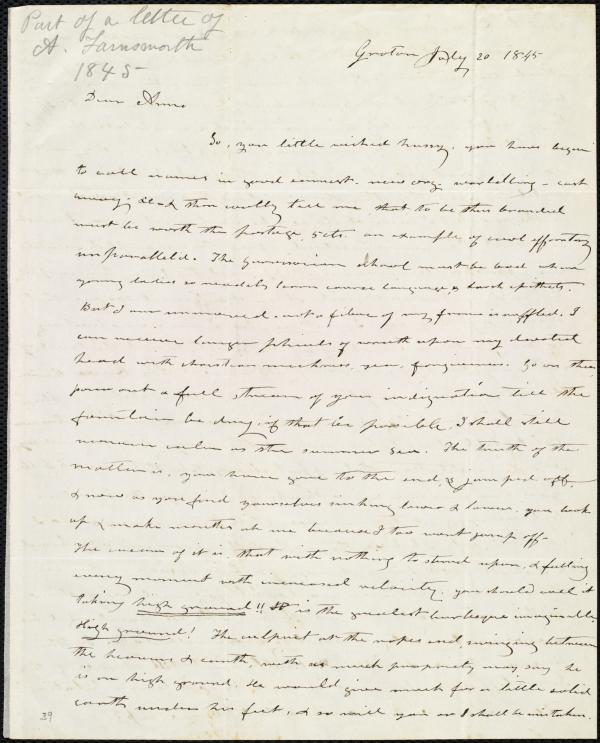 Part of a letter of
A. Farnsworth
1845
Groton July 20 1845
Dear Anne
So, you little wicked hussy, you have begun
to call names in good earnest.
away, &c & then coolly tell me that to be thus branded
must be worth the postage, 5cts. an example of cool effrontery
unparalleld. The school must be bad where
young ladies so readily learn coarse language & harsh epithets.
But I am unmoved, not a fibre of my frame is ruffled. I
can receive larger phials of wrath upon my devoted
head with christian meekness, yea, forgiveness. Go on then
pour out a full stream of your indignation till the
fountain be dry, if that be possible, I shall still
remain calm as the summer sea. The truth of the
matter is, you have gone to the end, & jumped off
& now as you find yourselves sinking lower & lower, you look
up & make mouths at me because I too wont jump off.
The cream of it is, that with nothing to stand upon, & falling
every moment with increased velocity, you should call it
taking high ground!! is the greatest burlesque imaginable
High ground! The culprit at the ropes end, swinging between
the heavens & earth, with as much propriety may say he
is on high ground. He would give much for a little solid
earth under his feet, & so will you or I shall be mistaken.
39